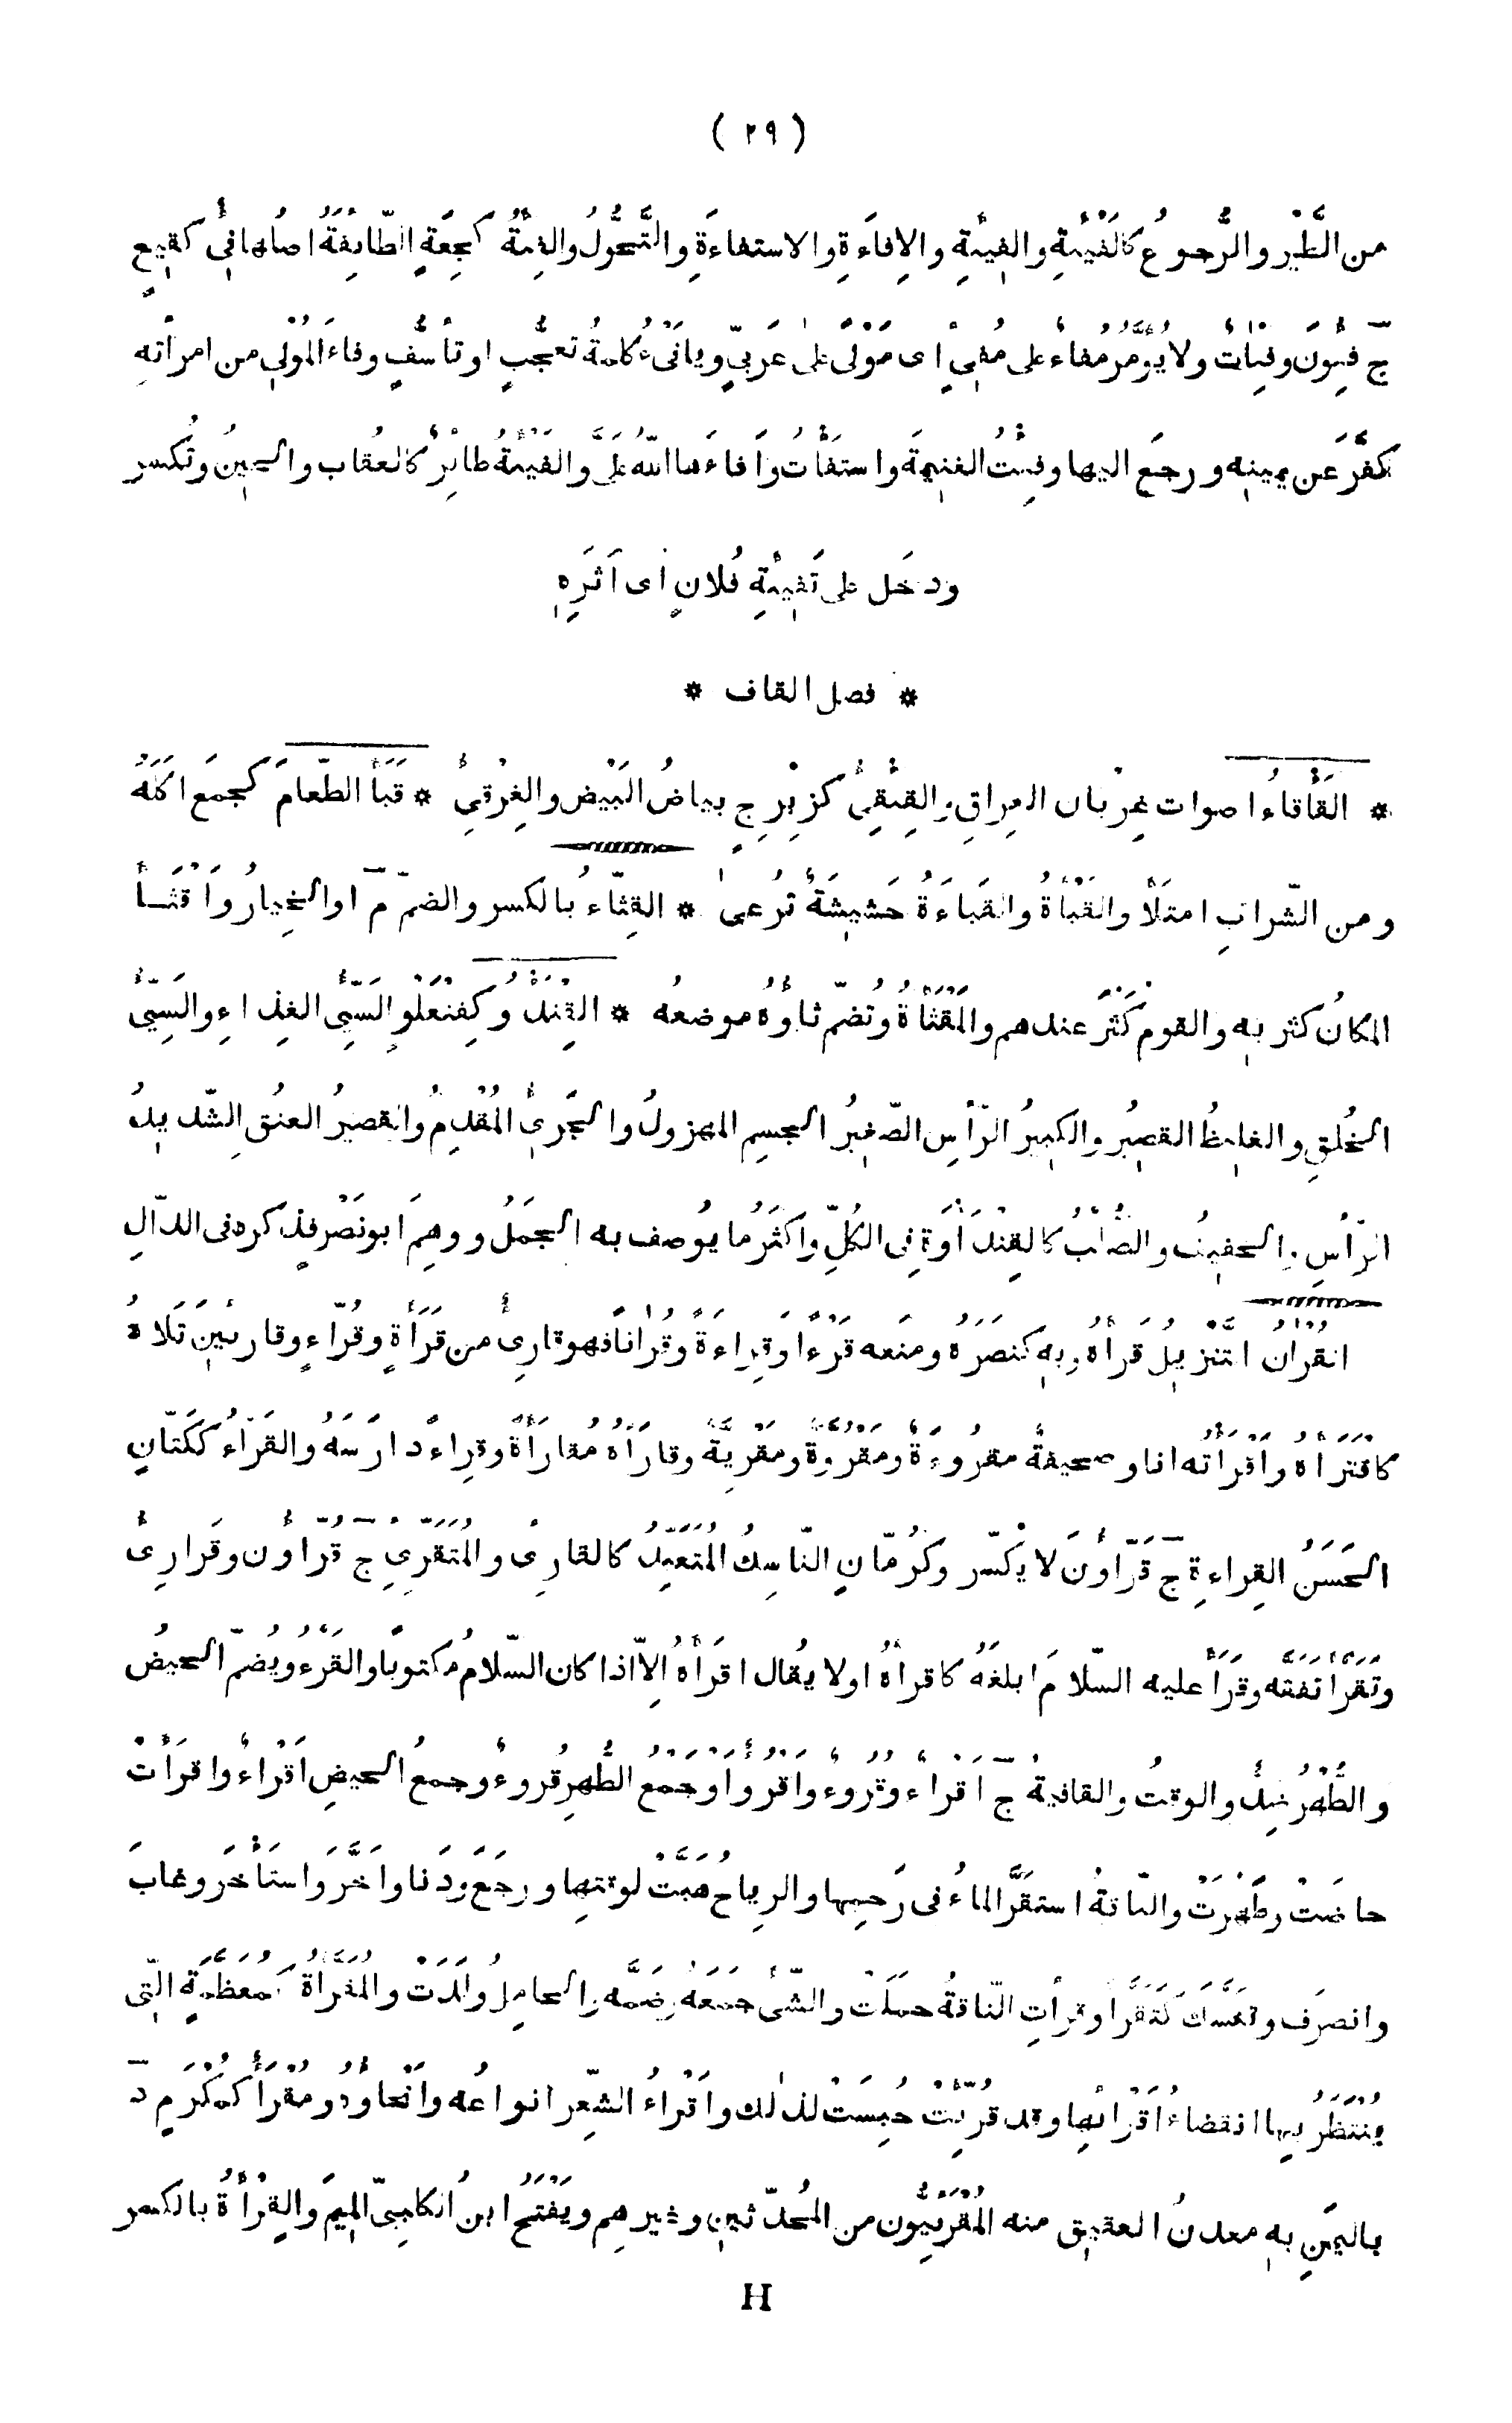 ( ٢٩ )
من الطَّيْر والرُّجوعُ كالفَيْئةِ والفِيئةِ والإِفاءَةِ والاستفاءَةِ والتَّحَوُّلُ والفِئَةُ كجِعَةٍ الطّائِفَةُ اصلُها فِئٌ كفِيعٍ
ج فِئون وفِئاتٌ ولا يُؤَمَّرُ مفاءٌ على مفيءٍ اى مَوْلًى على عَرَبيٍّ ويا فَىْءَ كلمةُ تعجُّبٍ او تأسُّفٍ وفاءَ المُوْلِى من امرأتِهِ
كفَّرَ عن يمينِهِ ورجعَ اليها وفِئْتُ الغنيمةَ واستفَأْتُ وأفاءَها اللّٰهُ علىَّ والفَيْئَةُ طائِرٌ كالعُقاب والحِينُ وتُكسر
ودخَل على تَفِيئَةِ فُلانٍ اى اَثَرِهِ
* فصل القاف *
* القَأْقاءُ اصوات غِرْبان العِراقِ والقِيْقِئُ كزِبْرِجٍ بياضُ البَيْضِ والغِرْقِئُ * قَبَأَ الطّعامَ كجمَعَ اكَلَهُ
ومن الشّرابِ امتلَأَ والقَبْأَةُ والقَباءَةُ حَشيشَةٌ تُرعىٰ * القِثّاءُ بالكسر والضمّ مّ اوالخِيارُ واَقْثَــأَ
المكانُ كثر بِهِ والقوم كَثُرَ عندهم والمَقْثَأَةُ وتُضَمّ ثاؤُهُ موضعُهُ * القِنْدَأْوُ كفِنْعَلْوٍ السَيِّئُ الغِذاءِ والسَيِّئُ
الخُلقِ والغليظُ القصيرُ والكبيرُ الرّأسِ الصّغيرُ الجسمِ المهزولُ والجَرِئُ المُقْدِمُ والقصيرُ العنُقِ الشّديدُ
الرّأسِ والخفيفُ والصُّلْبُ كالقِنْدَأْوَةِ فى الكُلِّ واكثَرُ ما يُوصف به الجمَلُ ووهِمَ ابو نَصْرٍ فذكره فى الدّالِ
القُرْآن التنزيلُ قرأَهُ وبِهِ كنصَرَهُ ومنَعه قَرْءًا وقِراءَةً وقُرْآنًا فهو قارِئٌ من قَرَأَةٍ وقُرّاءٍ وقارئِينَ تَلاهُ
كاقْتَرَأَهُ وأَقْرَأْتُه انا وصحيفةٌ مقرُوءَةٌ ومقرُوَّةٌ ومَقْرِيَّةٌ وقارَأَهُ مُقارَأَةً وقِراءً دارَسَهُ والقَرّاءُ ككتّانٍ
الحَسَنُ القِراءةِ ج قَرّاؤُنَ لا يُكسّر وكرُمّانٍ النّاسِكُ المُتَعبِّدُ كالقارِئِ والمُتَقَرِّئِ ج قُرّاؤن وقَرارِئُ
وتَقَرَّأَ تفَقَّه وقَرَأَ عليه السّلامَ ابلغَهُ كاقرأَهُ اولا يُقال اقرَأَهُ اِلّا اذا كان السّلامُ مكتوبًا والقَرْءُ ويُضمّ الحيضُ
والطُّهْرُ ضِدٌّ والوقتُ والقافيةُ ج اَقْراءٌ وقُروءٌ واَقْرُؤٌ اوجَمْعُ الطُّهرِ قُروءٌ وجمعُ الحيضِ اَقْراءٌ واقرَأَتْ
حاضَتْ وطَهُرَتْ والنّاقةُ استقرَّ الماءُ فى رَحِمِها والرِياحُ هَبَّتْ لوقتِها ورجَعَ ودَنا واَخَّرَ واستأْخَر وغابَ
وانصرَف وتنسَّكَ كتَقَرَّأَ وقرأَتِ النّاقةُ حمَلَتْ والشّئَ جَمَعَهُ وضَمَّه والحامِلُ ولَدَتْ والمُقَرَّأَةُ كمُعَظَّمَةٍ الّتى
يُنتظَرُ بها انقضاءُ اَقْرائِها وقد قُرِّئَتْ حُبِسَتْ لذٰلك واَقْراءُ الشِّعْرِ انواعُه وانحاؤُهُ ومُقْرَأٌ كمُكْرَمٍ د
باليَمَنِ بِهِ معدنُ العقيقِ منه المُقْرَئِيُّون من المُحدّثينِ وغيرِهِم ويَفْتَحُ ابنُ الكلبِىّ المِيمَ والقِرْأَةُ بالكسر
H